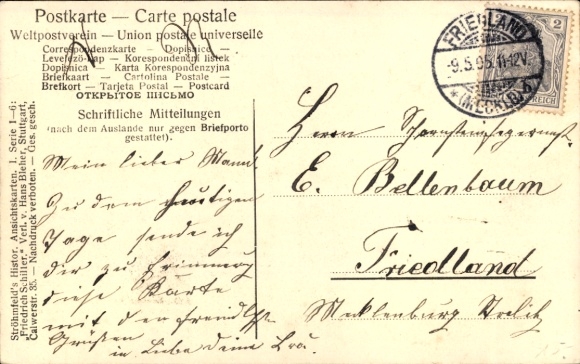 Postkarte — Carte postale
Weltpostverein — Union postale universelle
Correspondenzkarte — Dopisnice —
Levelező-lap — Korespondenční lístek
Dopisnica — Karta Korespondencyjna
Briefkaart — Cartolina Postale —
Brefkort — Tarjeta Postal — Postcard
ОТКРЫТОЕ ПИСЬМО
Schriftliche Mitteilungen
(nach dem Auslande nur gegen Briefporto
gestattet).
Mein lieber Mann.
Zu dem heutigen
Tage sende ich
dir zu Erinnerung
diese Karte
mit den
Grüßen
in Liebe deine Frau.
FRIEDLAND
-9.5.05.11-12V.
* (MECKLB) *
2
REICH
Herrn
E. Bellenbaum
Friedland
Mecklenburg Strelitz
Ströhmfeld's Histor. Ansichtskarten. I. Serie 1—6:
"Friedrich Schiller." Verl. v. Hans Bleher, Stuttgart,
Calwerstr. 35. — Nachdruck verboten. — Ges. gesch.